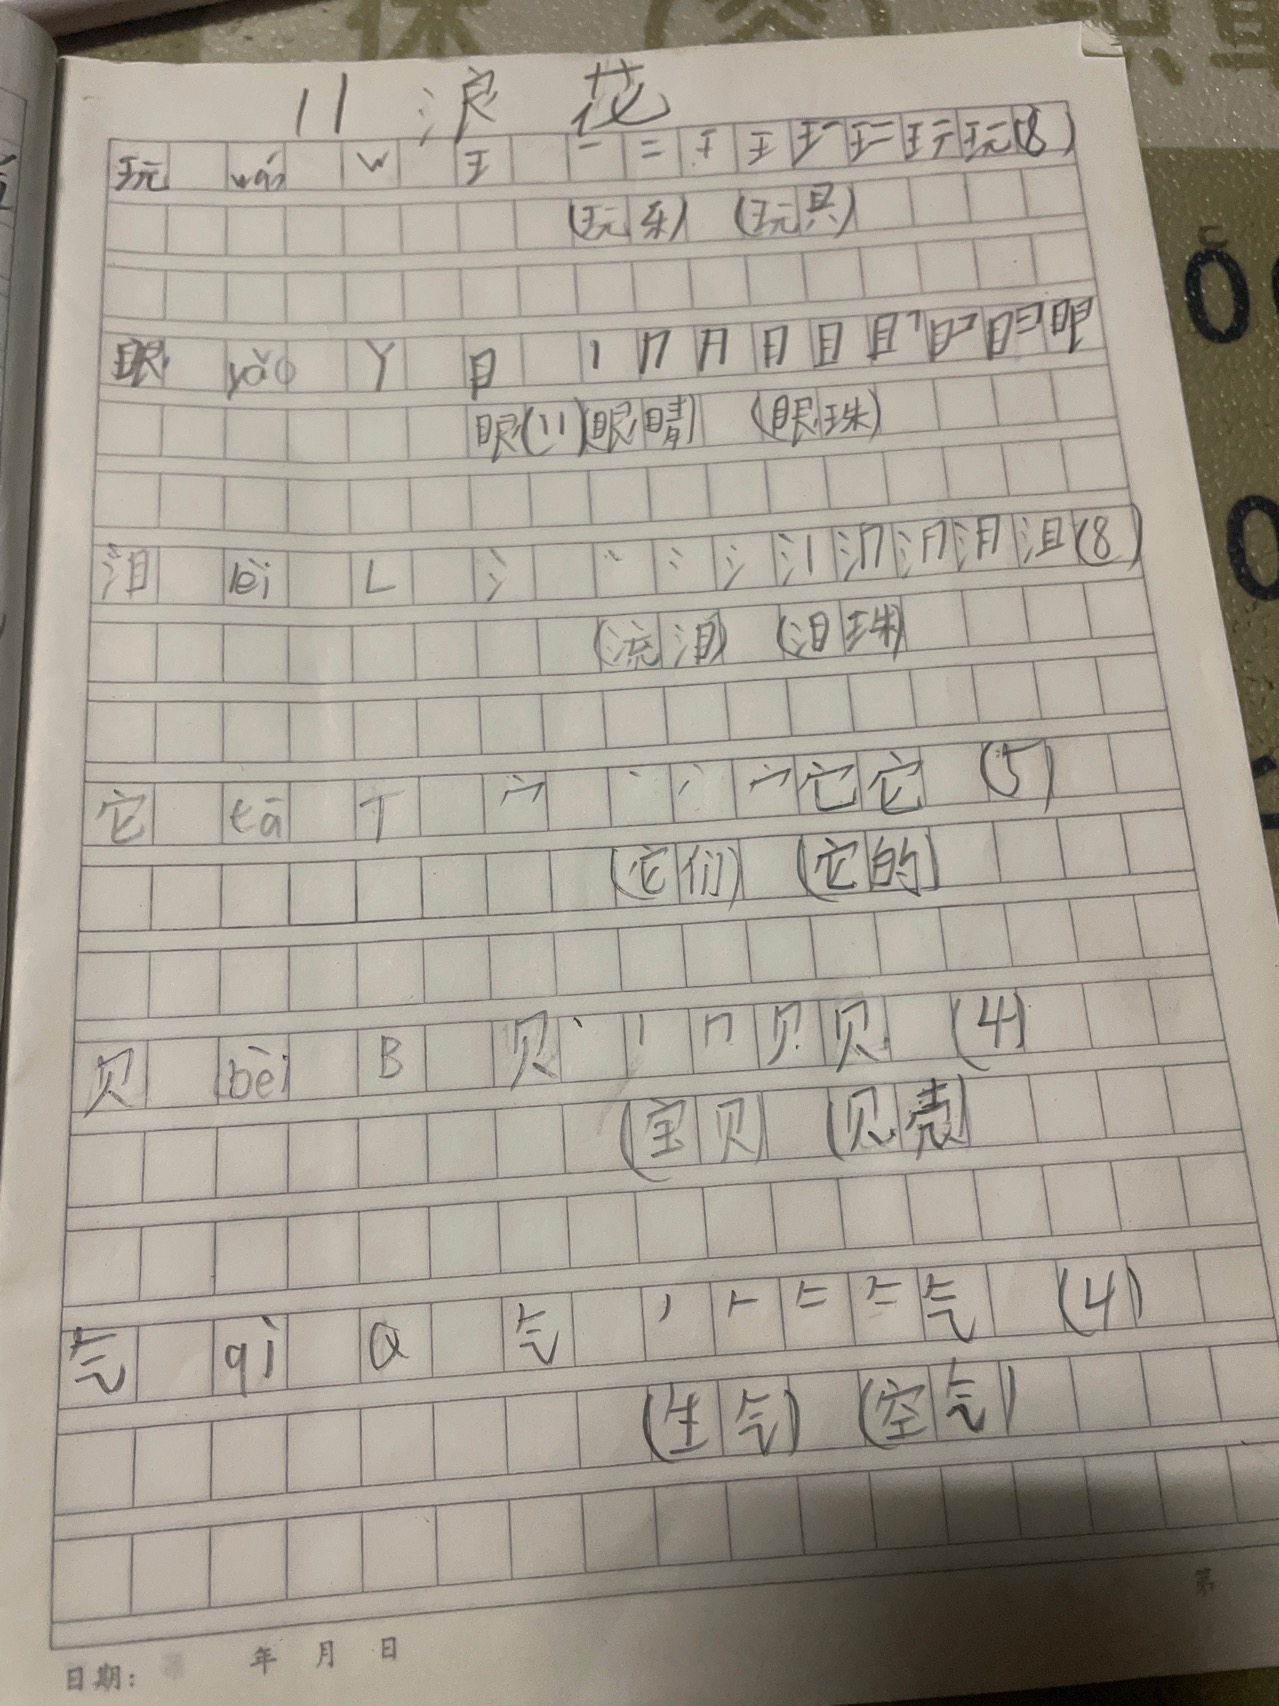 11 浪花
玩 wán W 王 一 二 干 王 王一 王二 玩 玩(8)
(玩乐) (玩具)
眼 Y 目 丨 冂 月 月 目 眼
眼(11)(眼晴) (眼珠)
泪 lèi L 氵 丶 冫 氵 泪(8)
(流泪) (泪珠)
它 tā T 宀 丶 丷 宀 它 它 (5)
(它们) (它的)
贝 bèi B 贝 丨 冂 贝 贝 (4)
(宝贝) (贝壳)
气 qì Q 气 丿 𠂉 气 (4)
(生气) (空气)
日期: 年 月 日
第